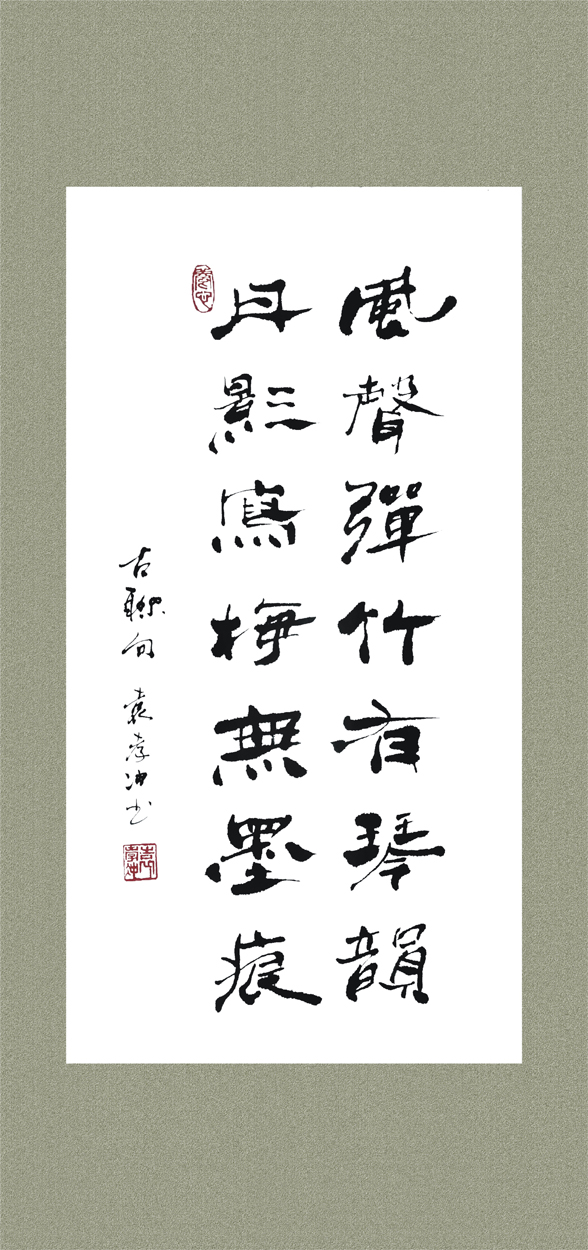 風聲彈竹有琴韻
月影寫梅無墨痕
古聯句 袁孝冲书